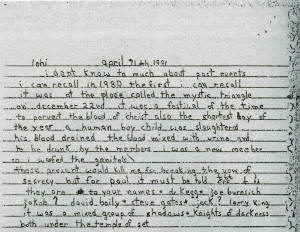 april 1991
i dont know to much about past events
i can recall in 1982 the first i can recall
it was at the place called the mystic triangle
on december 22nd it was a festival of the time
to pervert the blood of christ also the shortest day of
the year a human boy child was slaughterd
his blood drained the blood mixed with urine and
to be drunk by the members i was a new member
so i
those present would kill me for breaking the vow of
secrecy but for paul it must be told
they are to your names joe burnsich
jakob ? david baily * steve gates * jack ? larry king
it was a mixed group of shadows * knights of darkness
both under the temple of set